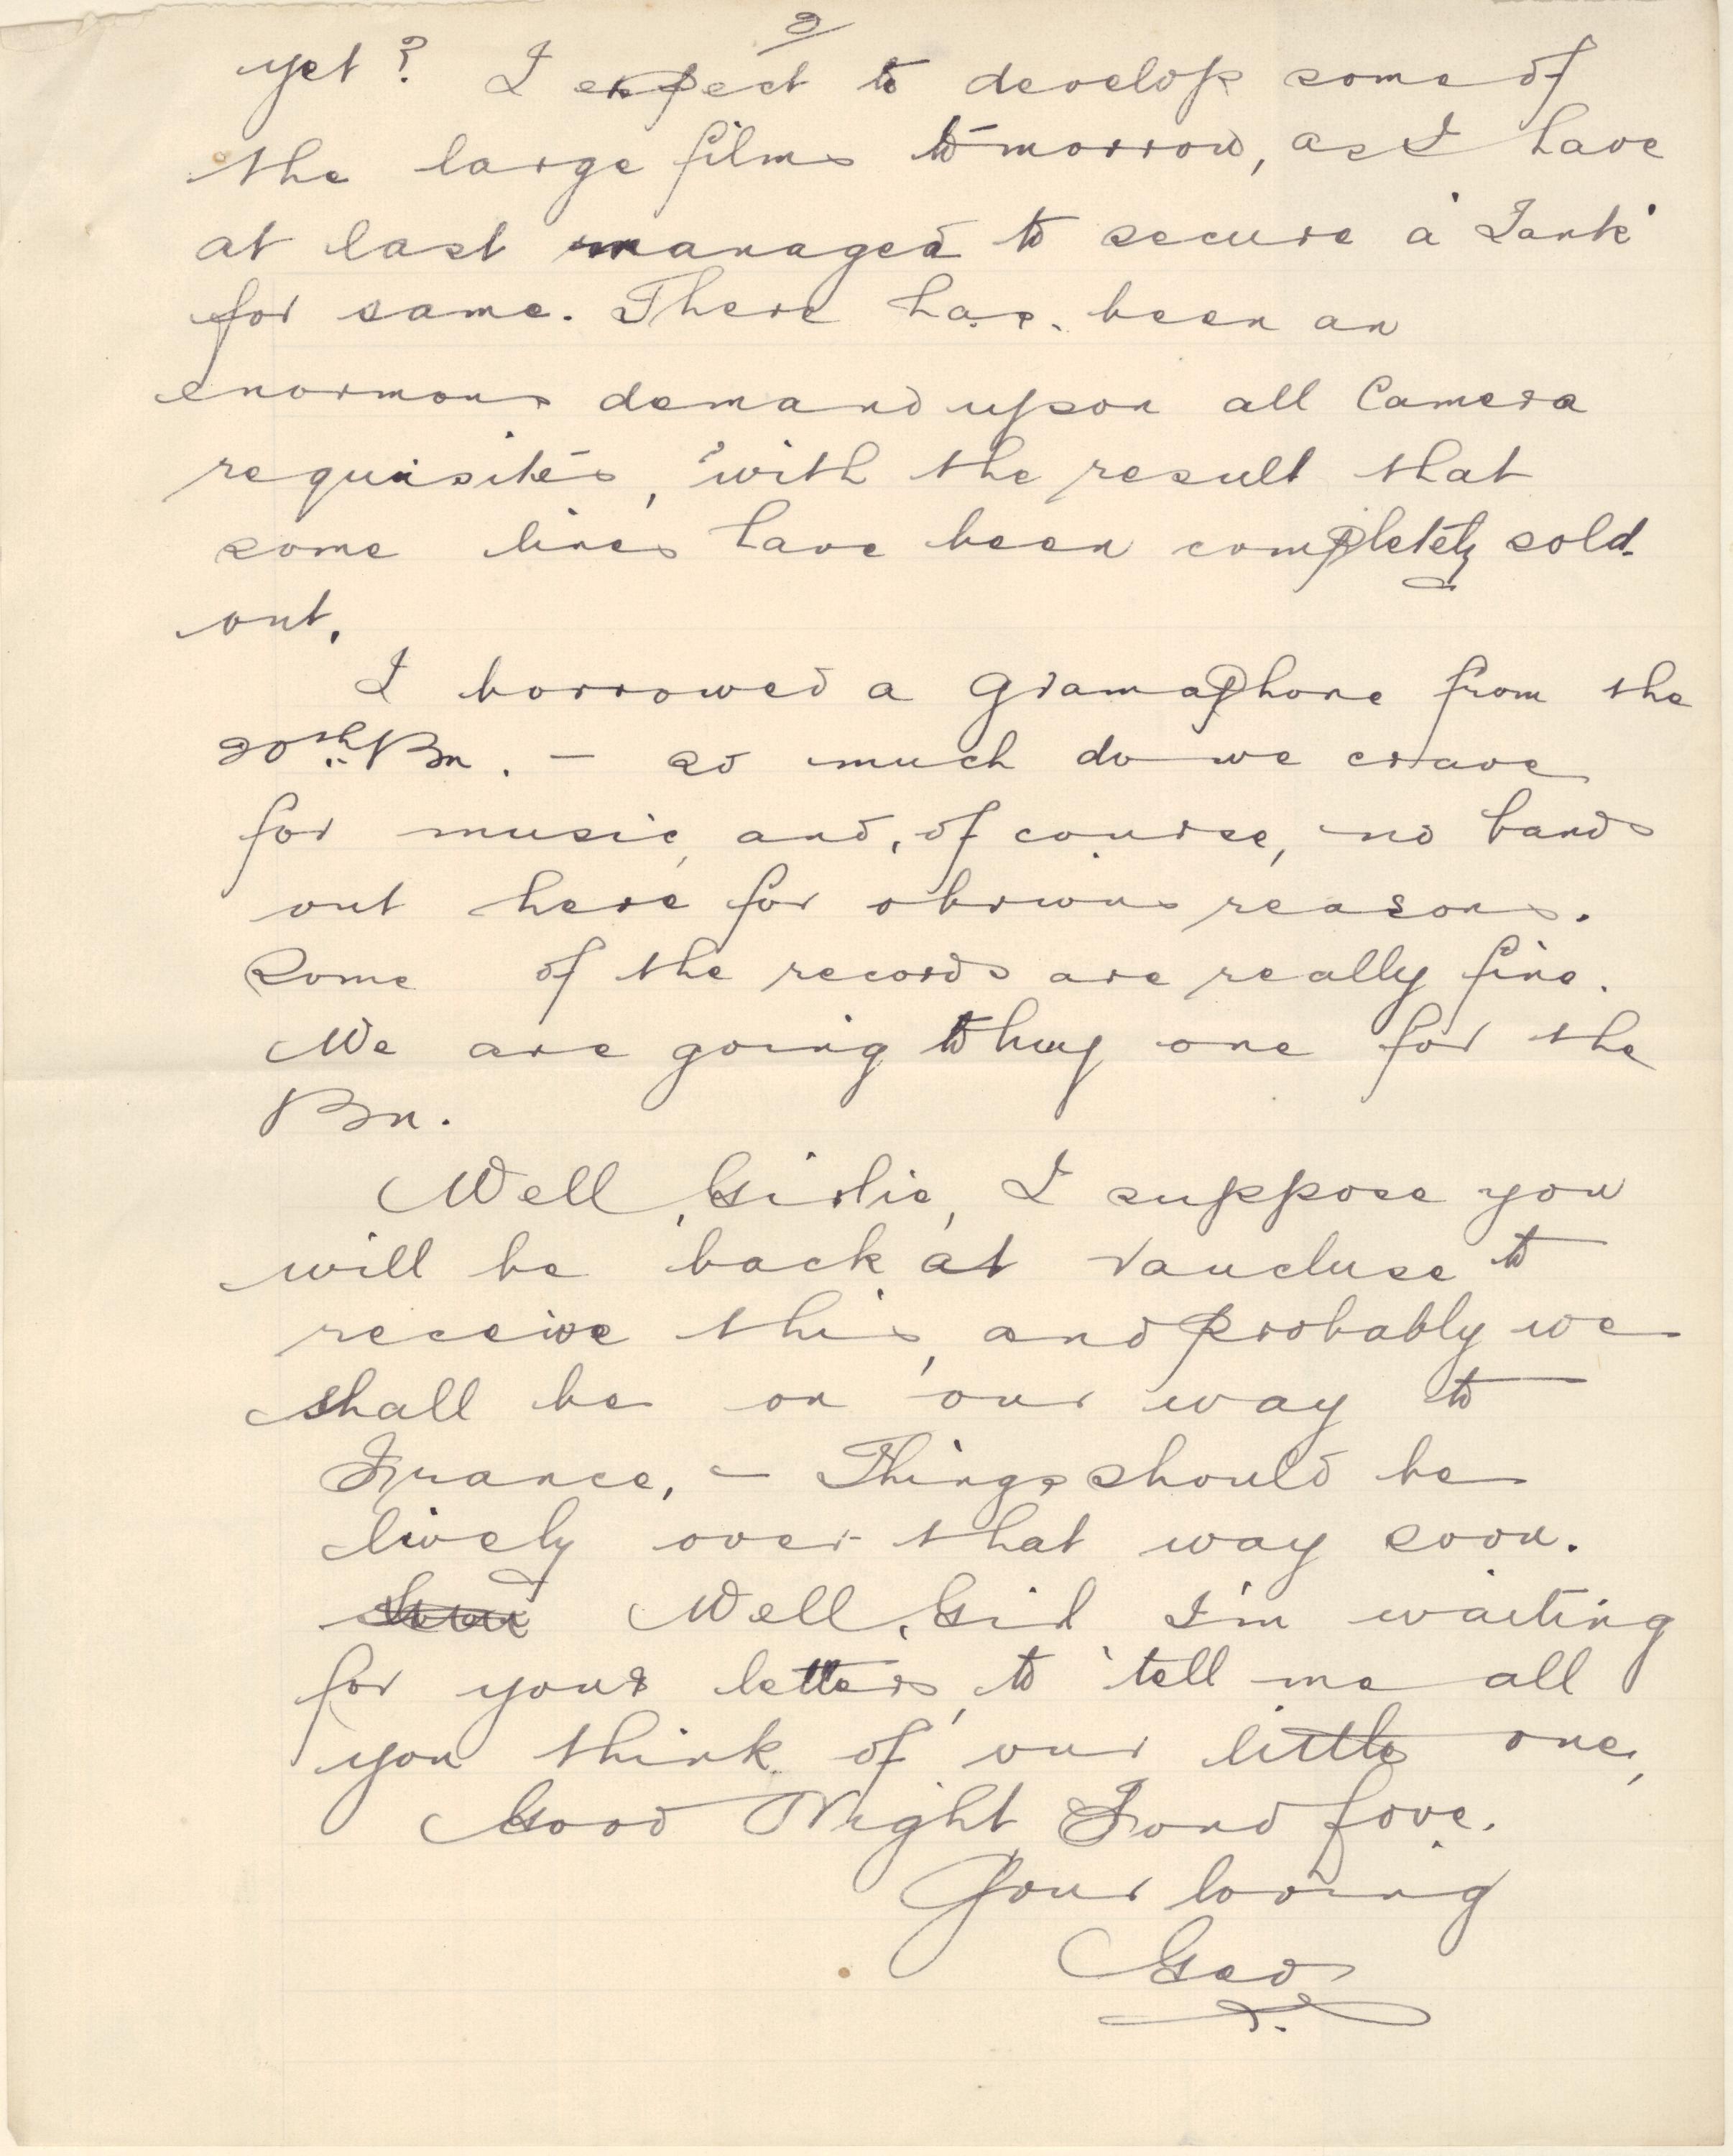 2
yet? I expect to develop some of
the large films to-morrow, as I have
at last managed to secure a 'Tank'
for same. There has been an
enormous demand upon all Camera
requisites, with the result that
some lines have been completely sold
out.
I borrowed a Gramaphone from the
20th Bn. — so much do we crave
for music, and, of course, no bands
out here for obvious reasons.
Some of the records are really fine.
We are going to buy one for the
Bn.
Well, Girlie, I suppose you
will be back at Vaucluse to
receive this, and probably we
shall be on our way to
France, — Things should be
lively over that way soon.
Well, Girl I'm waiting
for your letters, to tell me all
you think of our little one,
Good Night Fond Love.
Your loving
Geo